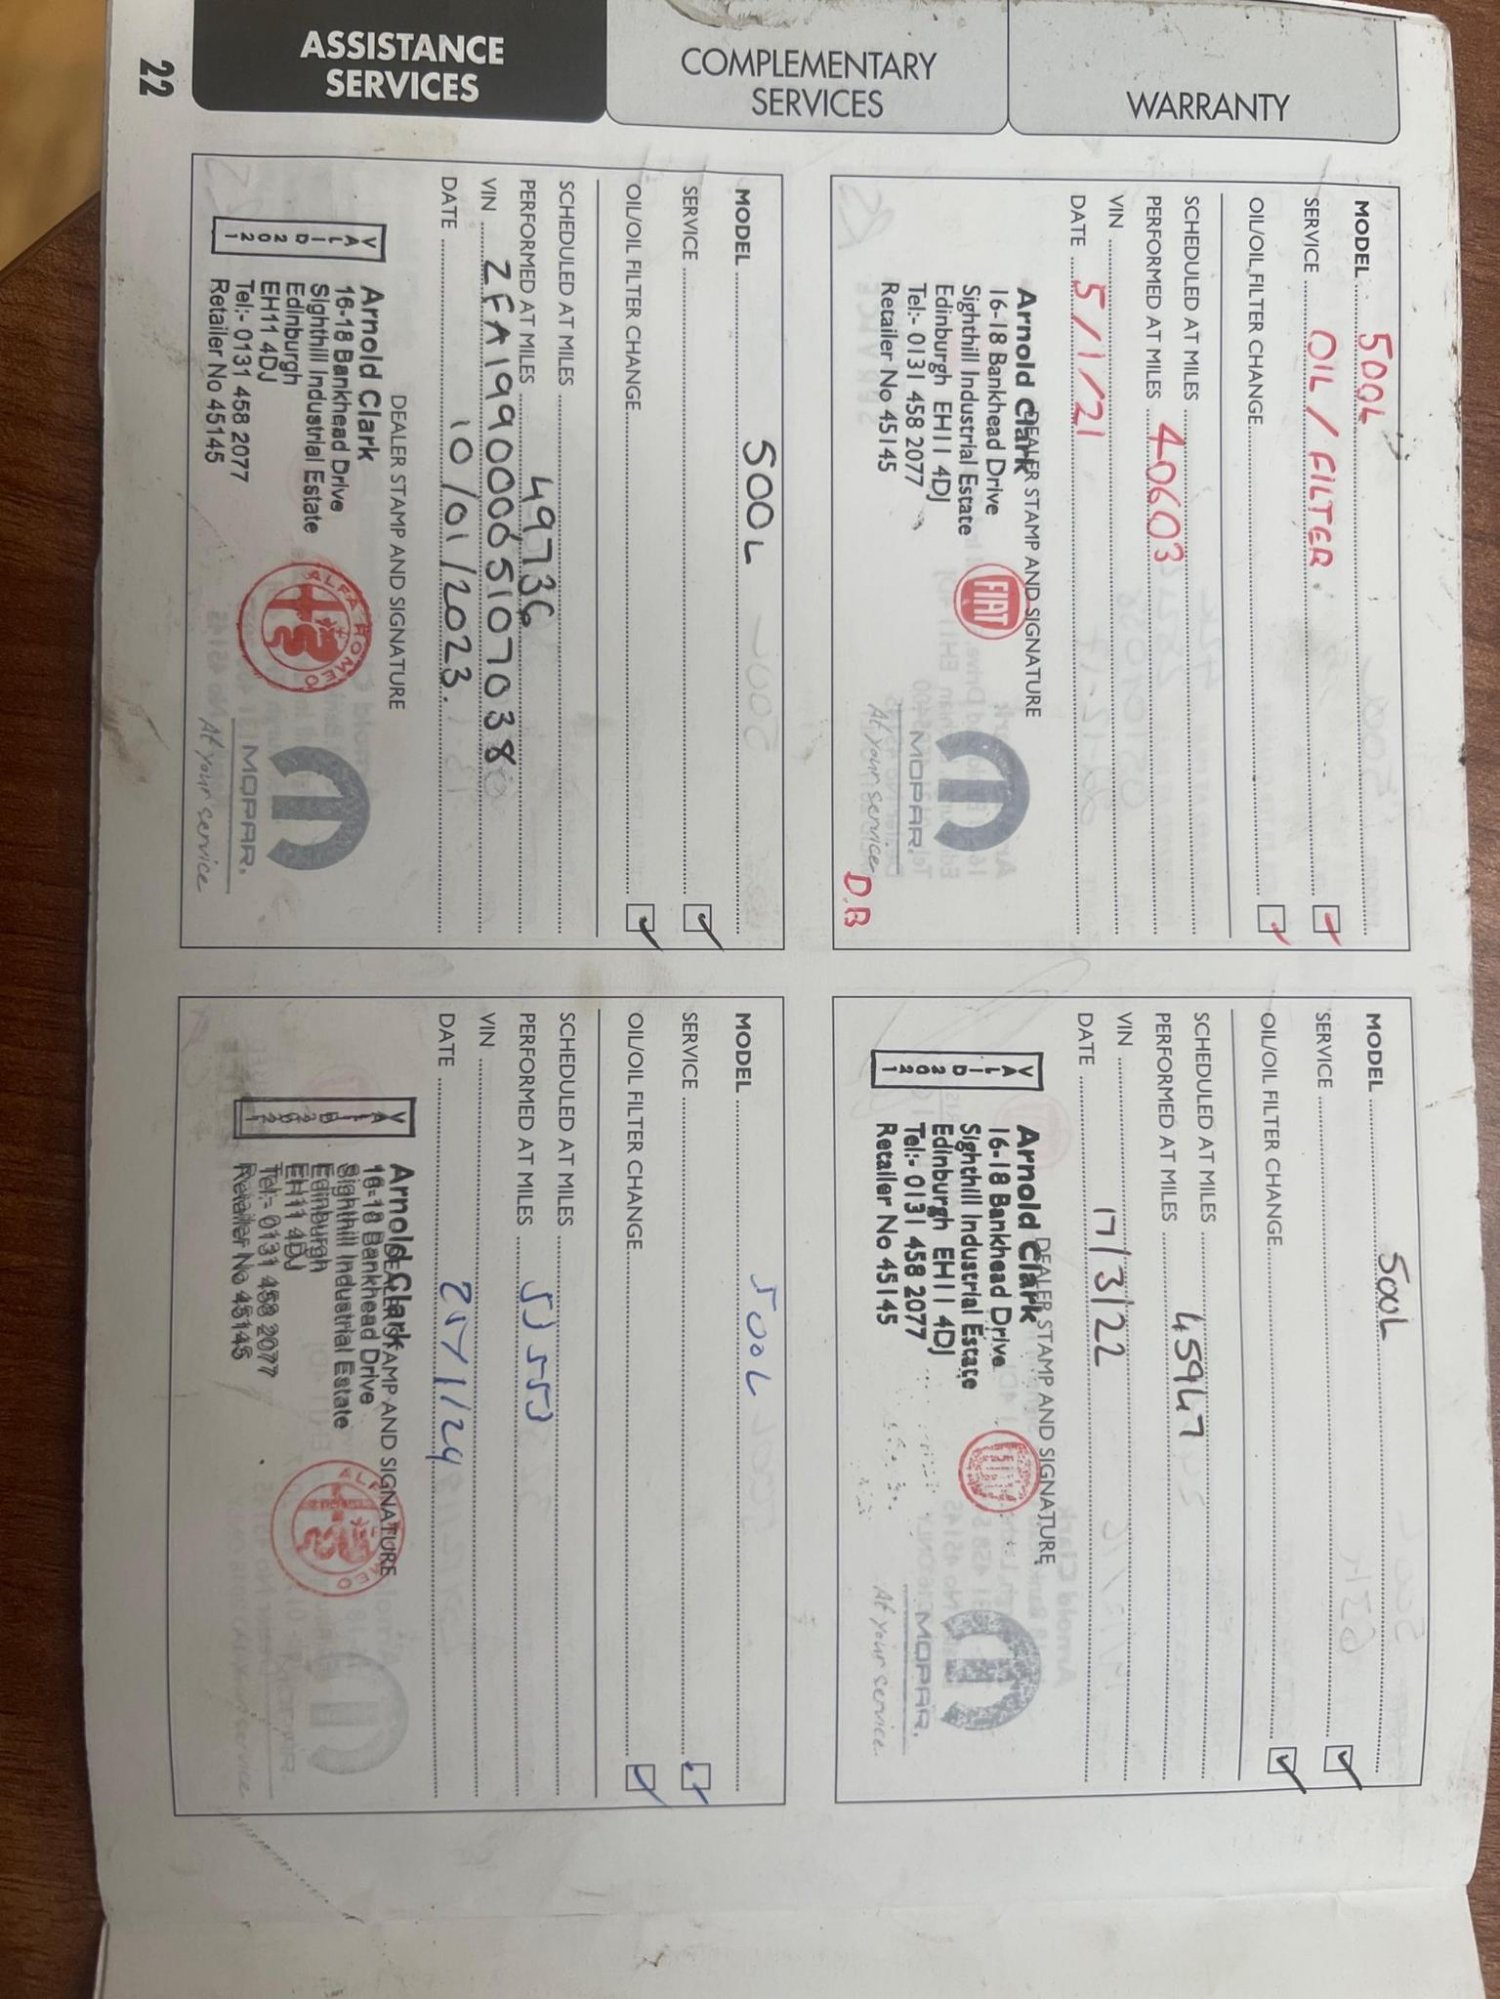 WARRANTY
COMPLEMENTARY
SERVICES
ASSISTANCE
SERVICES
22
MODEL 500L
SERVICE OIL / FILTER.
OIL/OIL FILTER CHANGE
SCHEDULED AT MILES
PERFORMED AT MILES 40603
VIN
DATE 5/1/21
DEALER STAMP AND SIGNATURE
Arnold Clark
16-18 Bankhead Drive
Sighthill Industrial Estate
Edinburgh EH11 4DJ
Tel:- 0131 458 2077
Retailer No 45145
FIAT
MOPAR.
At your service
D.B
MODEL 500L
SERVICE
OIL/OIL FILTER CHANGE
SCHEDULED AT MILES
PERFORMED AT MILES 45947
VIN
DATE 17/3/22
DEALER STAMP AND SIGNATURE
VALID 2021
Arnold Clark
16-18 Bankhead Drive
Sighthill Industrial Estate
Edinburgh EH11 4DJ
Tel:- 0131 458 2077
Retailer No 45145
MOPAR.
At your service
MODEL 500L
SERVICE
OIL/OIL FILTER CHANGE
SCHEDULED AT MILES
PERFORMED AT MILES 49736
VIN ZFA19900005107038
DATE 10/01/2023.
DEALER STAMP AND SIGNATURE
VALID 2021
Arnold Clark
16-18 Bankhead Drive
Sighthill Industrial Estate
Edinburgh
EH11 4DJ
Tel:- 0131 458 2077
Retailer No 45145
ALFA ROMEO
MOPAR.
At your service
MODEL 500L
SERVICE
OIL/OIL FILTER CHANGE
SCHEDULED AT MILES
PERFORMED AT MILES
VIN
DATE
DEALER STAMP AND SIGNATURE
VALID 2021
Arnold Clark
16-18 Bankhead Drive
Sighthill Industrial Estate
Edinburgh
EH11 4DJ
Tel:- 0131 458 2077
Retailer No 45145